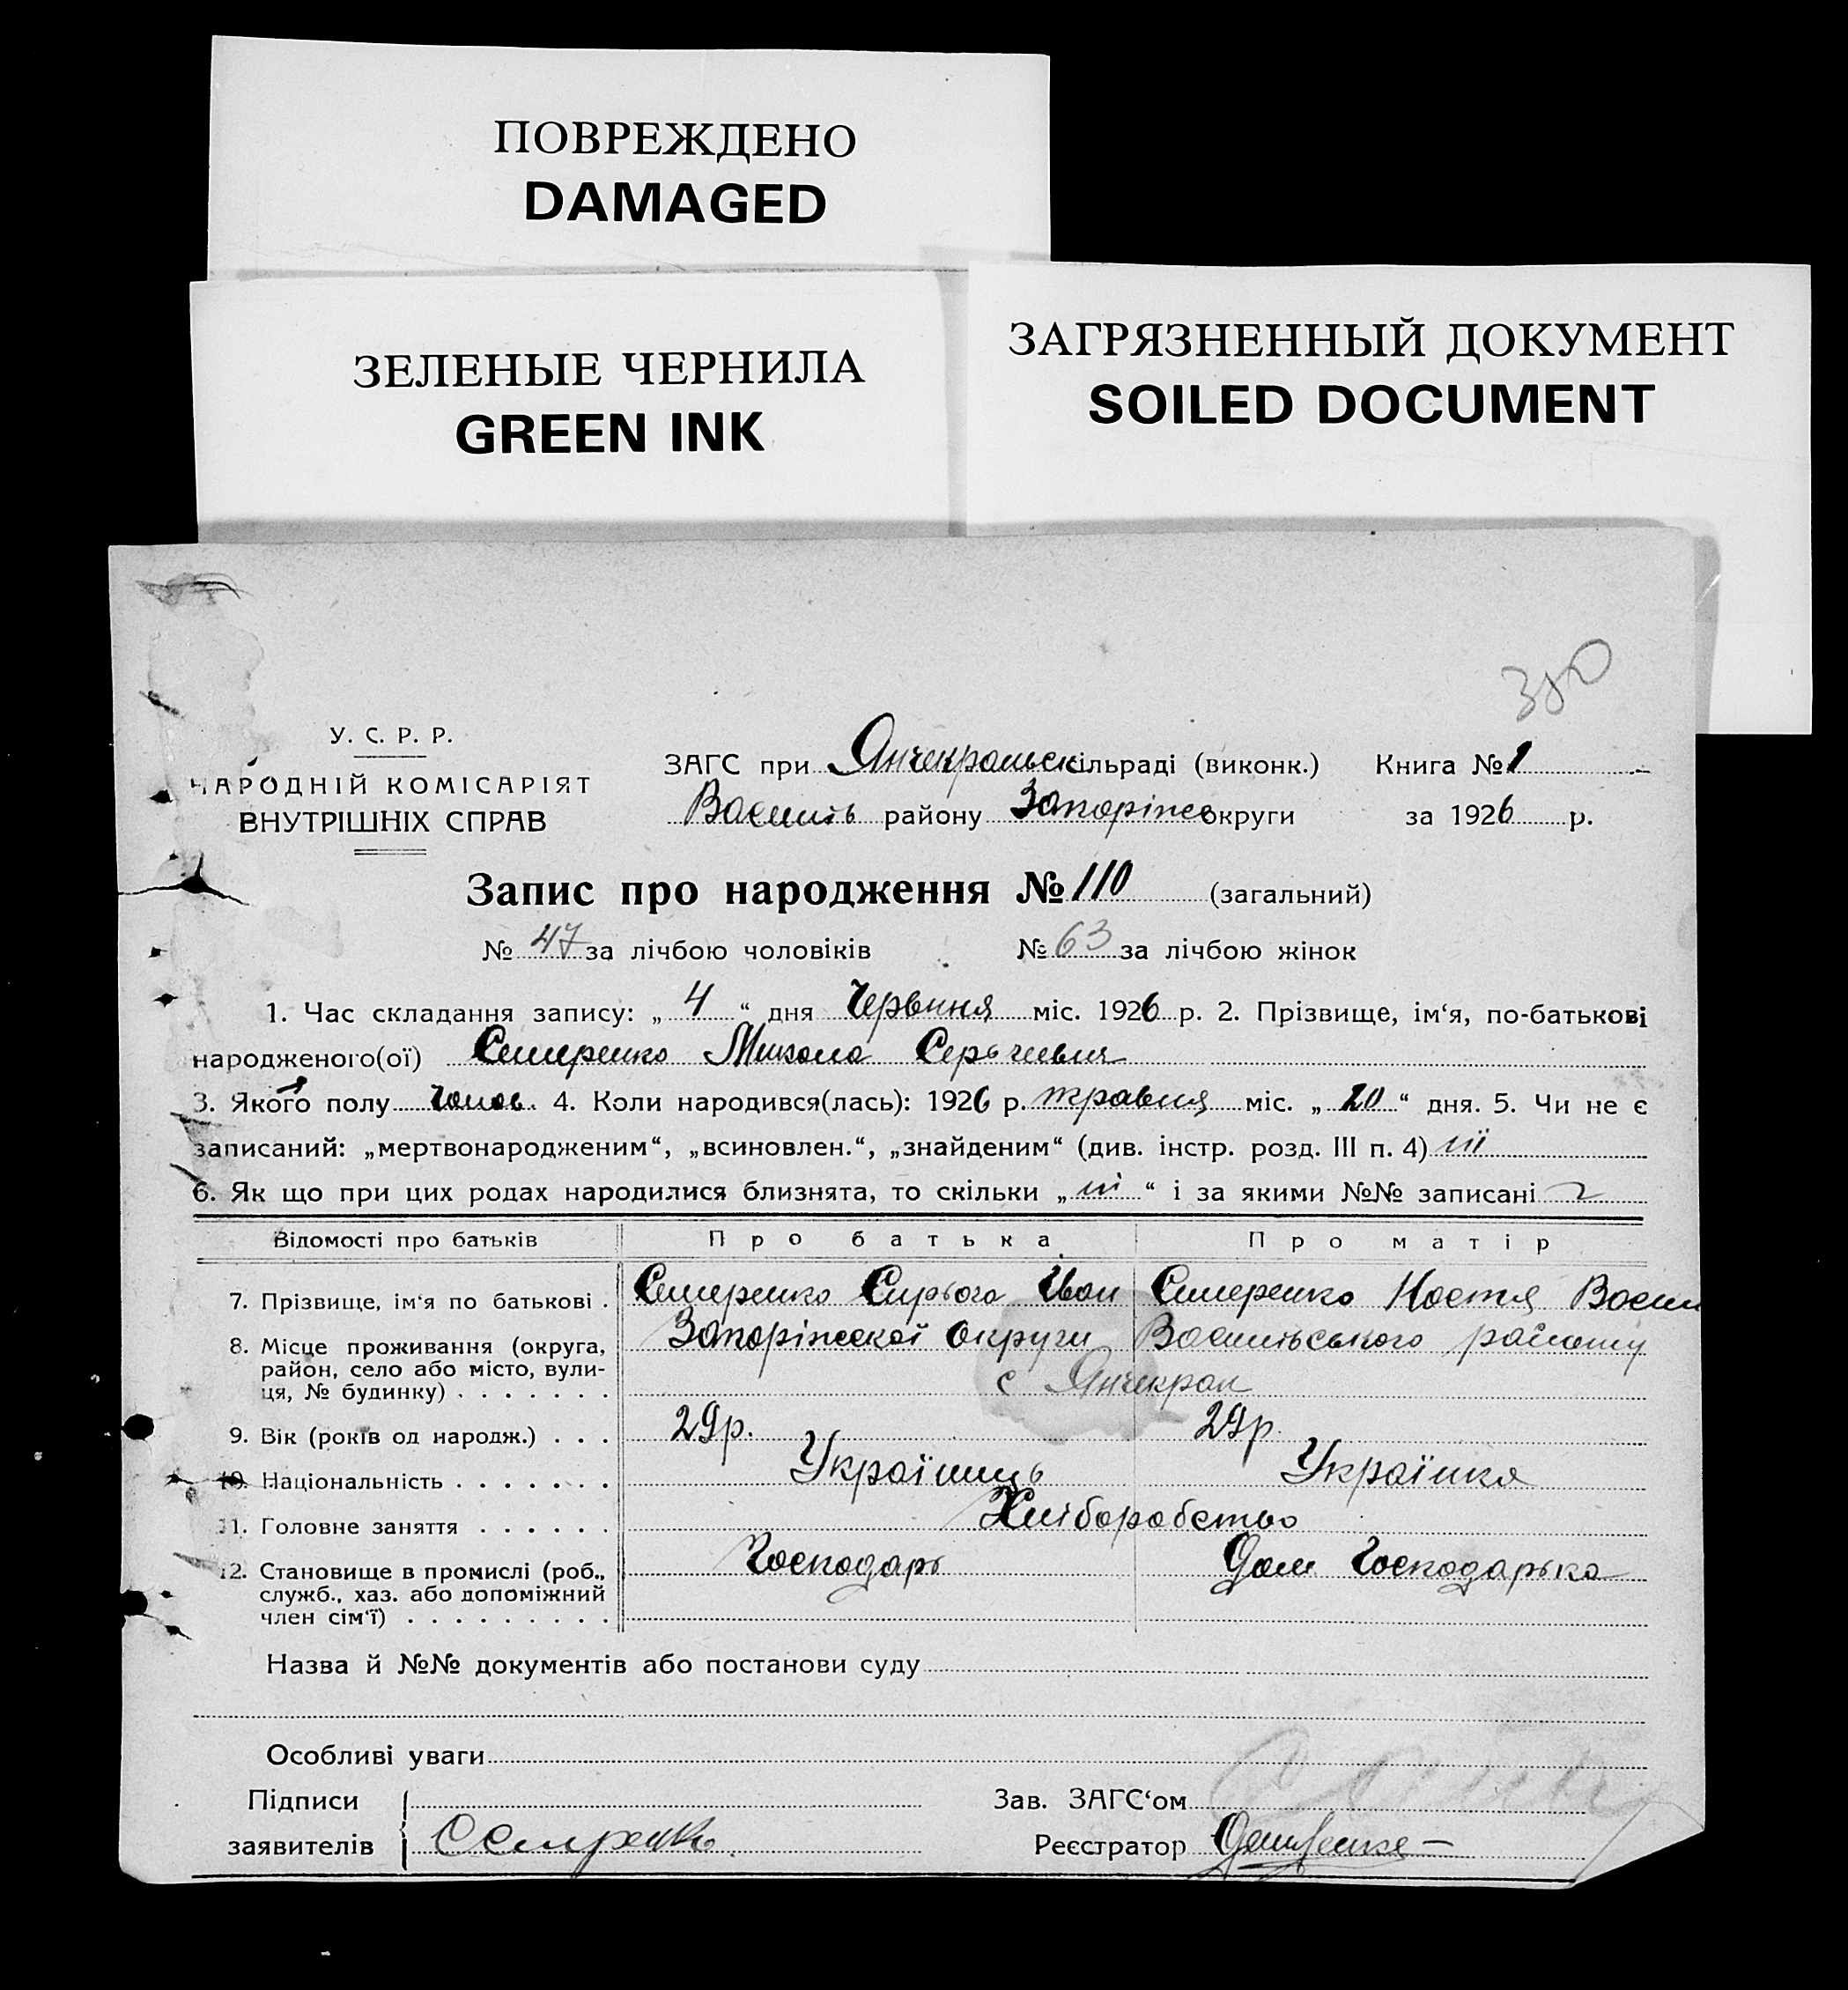 ПОВРЕЖДЕНО
DAMAGED
ЗЕЛЕНЫЕ ЧЕРНИЛА
GREEN INK
ЗАГРЯЗНЕННЫЙ ДОКУМЕНТ
SOILED DOCUMENT
У. С. Р. Р.
НАРОДНІЙ КОМІСАРІЯТ
ВНУТРІШНІХ СПРАВ
ЗАГС при Янчекральск сільраді (виконк.) Книга № 1
Василь району Запоріжс округи за 1926 р.
Запис про народження № 110 (загальний)
№ 47 за лічбою чоловіків № 63 за лічбою жінок
1. Час складання запису: „ 4 “ дня Червння міс. 1926 р. 2. Прізвище, ім‘я, по-батькові
народженого(ої) Семеренко Микола
3. Якого полу чолов. 4. Коли народився(лась): 1926 р. травня міс. „ 20 “ дня. 5. Чи не є
записаний: „мертвонародженим“, „всиновлен.“, „знайденим“ (див. інстр. розд. III п. 4) ні
6. Як що при цих родах народилися близнята, то скільки „ ні “ і за якими №№ записані
Відомості про батьків Про батька Про матір
7. Прізвище, ім‘я по батькові . Семеренко Сирьога Іван Семеренко Настя Васил
8. Місце проживання (округа, Запоріжської Округи Васильського району
район, село або місто, вули-
ця, № будинку) . . . . . . . с Янчекрак
9. Вік (років од народж.) . . . 29р. 29р.
10. Національність . . . . . . . Українць Українка
11. Головне заняття . . . . . . Хліборобство
12. Становище в промислі (роб., Господарь Дом Господарька
служб., хаз. або допоміжний
член сім‘ї) . . . . . . . . .
Назва й №№ документів або постанови суду
Особливі уваги
Підписи Зав. ЗАГС‘ом
заявителів Реєстратор